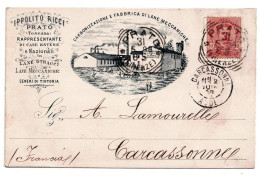 CARBONIZZAZIONE E FABBRICA DI LANE MECCANICHE
IPPOLITO RICCI
PRATO
Toscana
RAPPRESENTANTE
DI CASE ESTERE
e Nazionali
LANE
LANE MECCANICHE
GENERI DI TINTORIA
PRATO
CARCASSONNE
AUDE
S. A. Lamourelle
(Francia)
Carcassonne